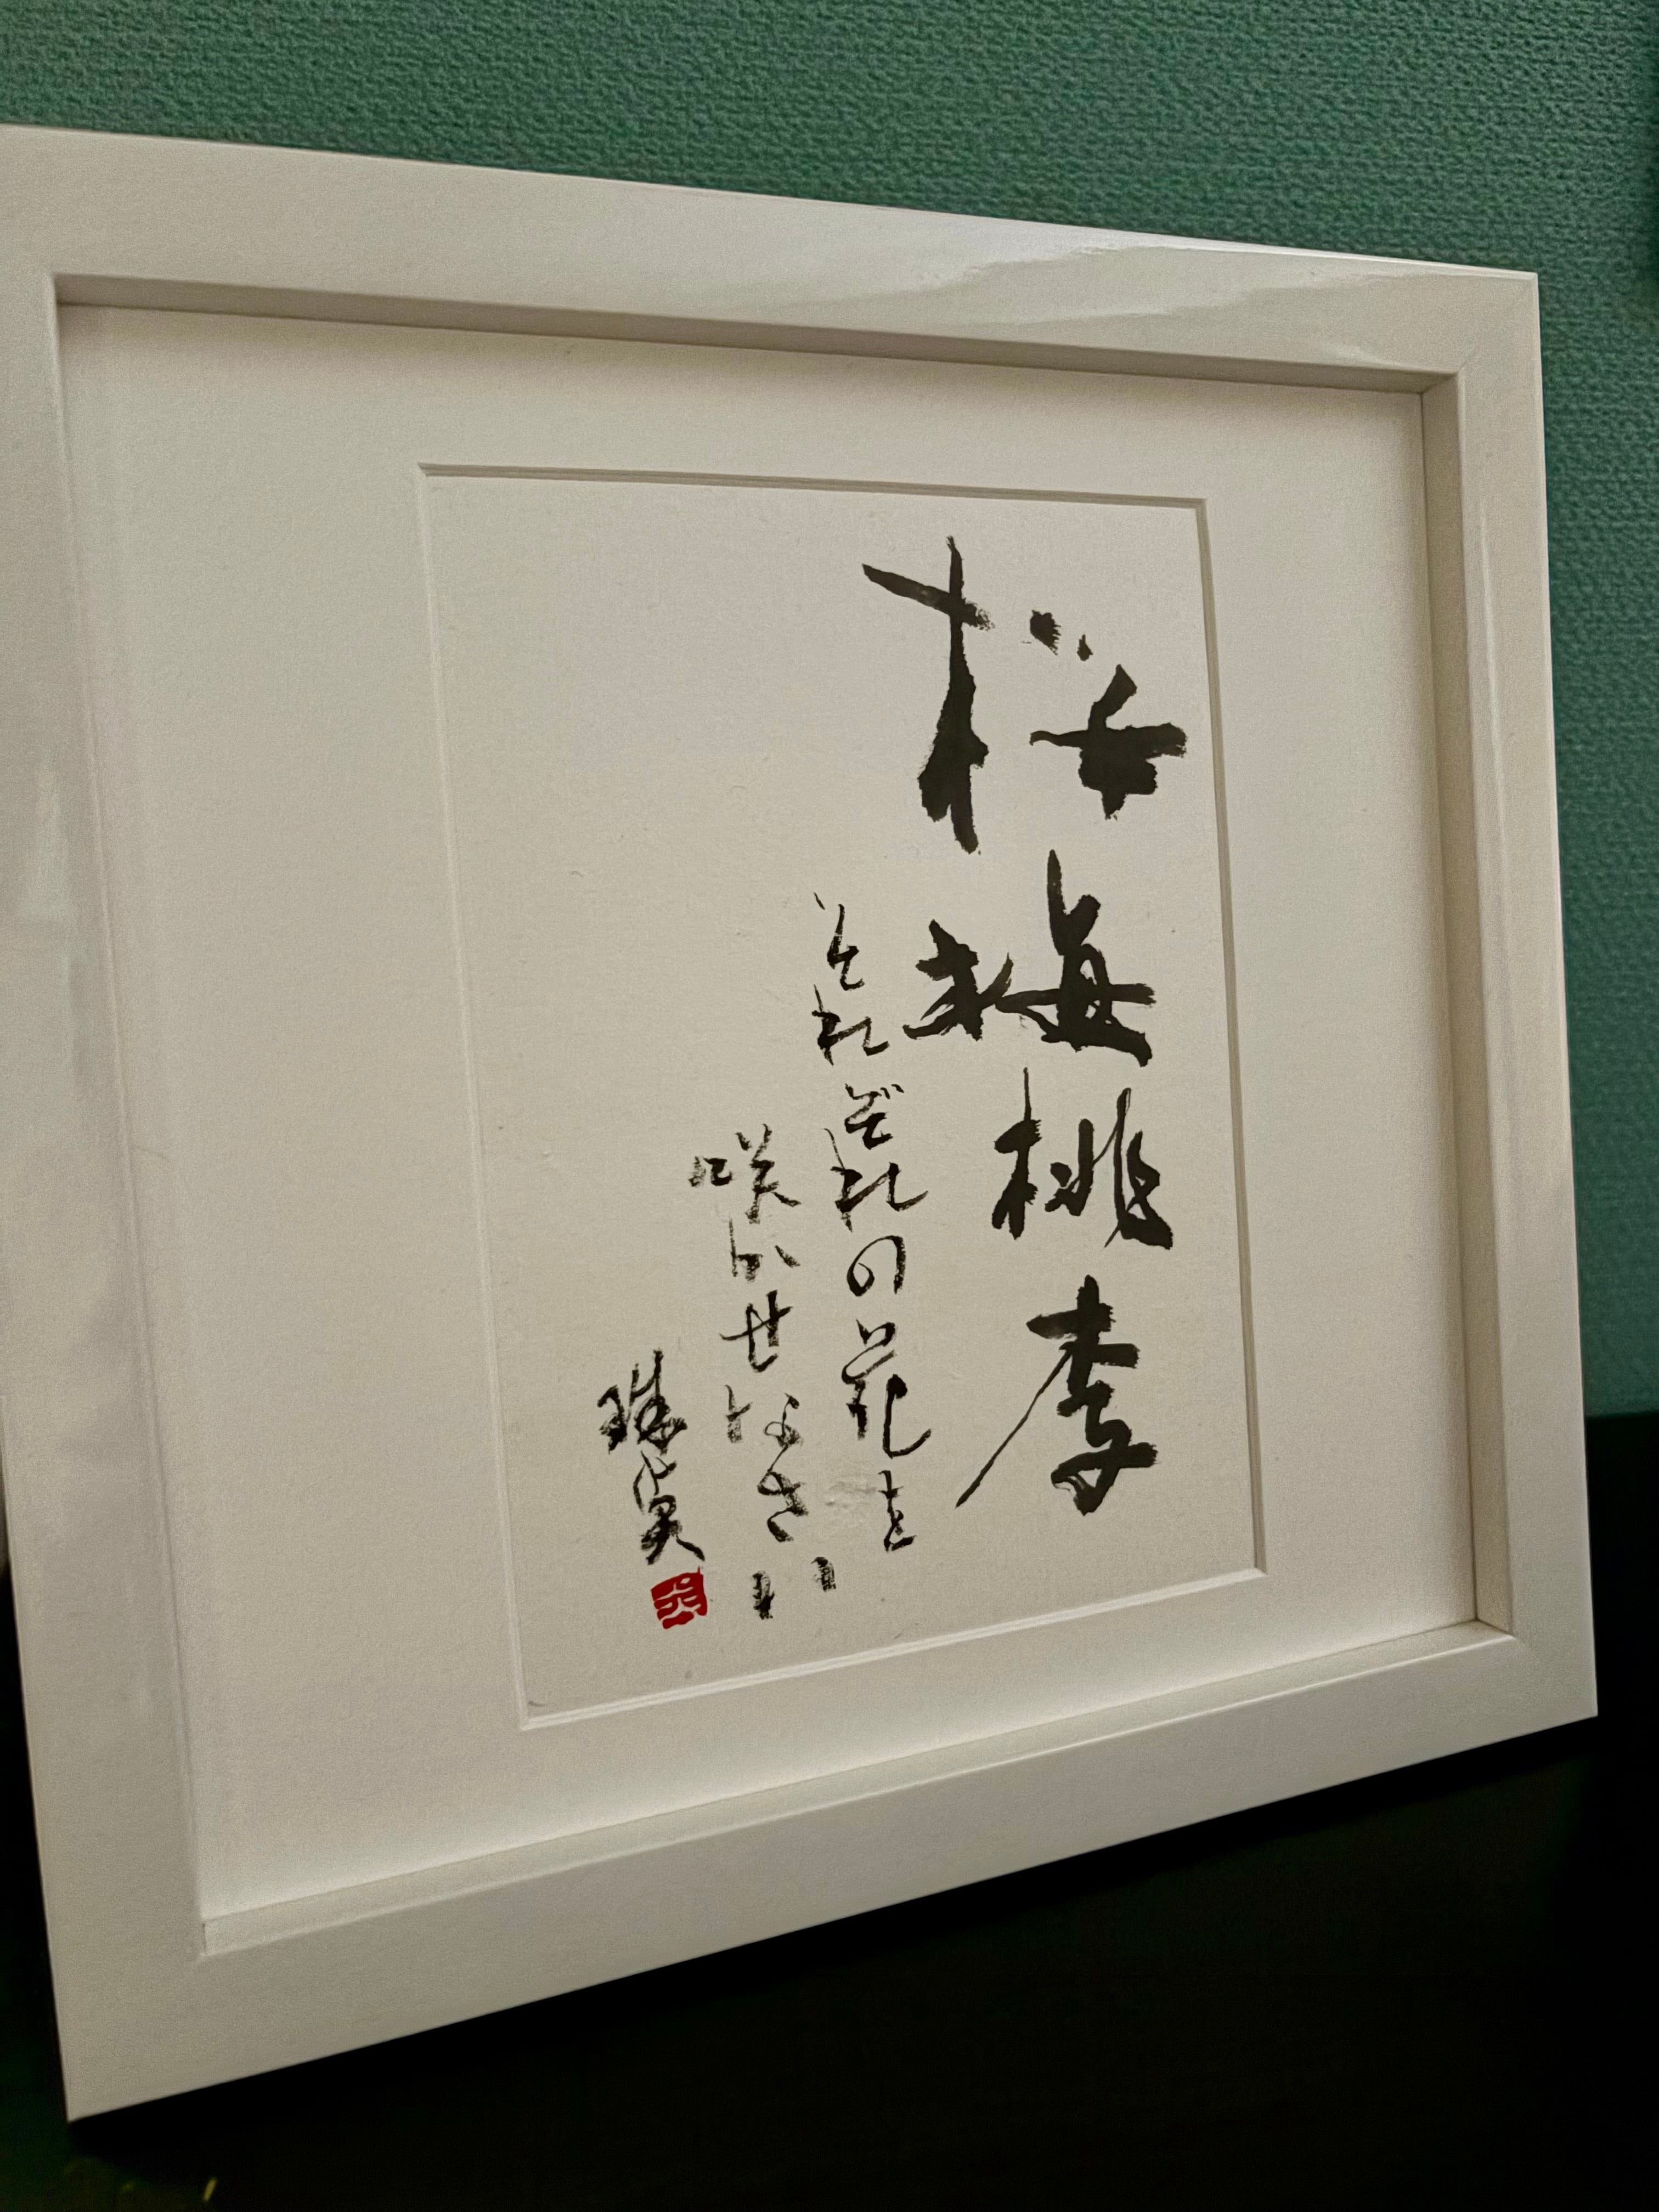 桜梅桃李
それぞれの花を
咲かせなさい